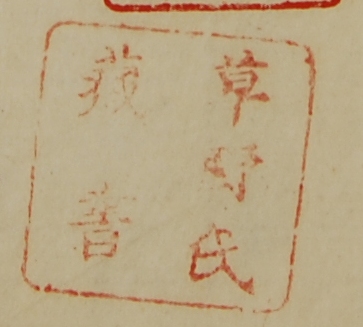 草野氏
蔵書